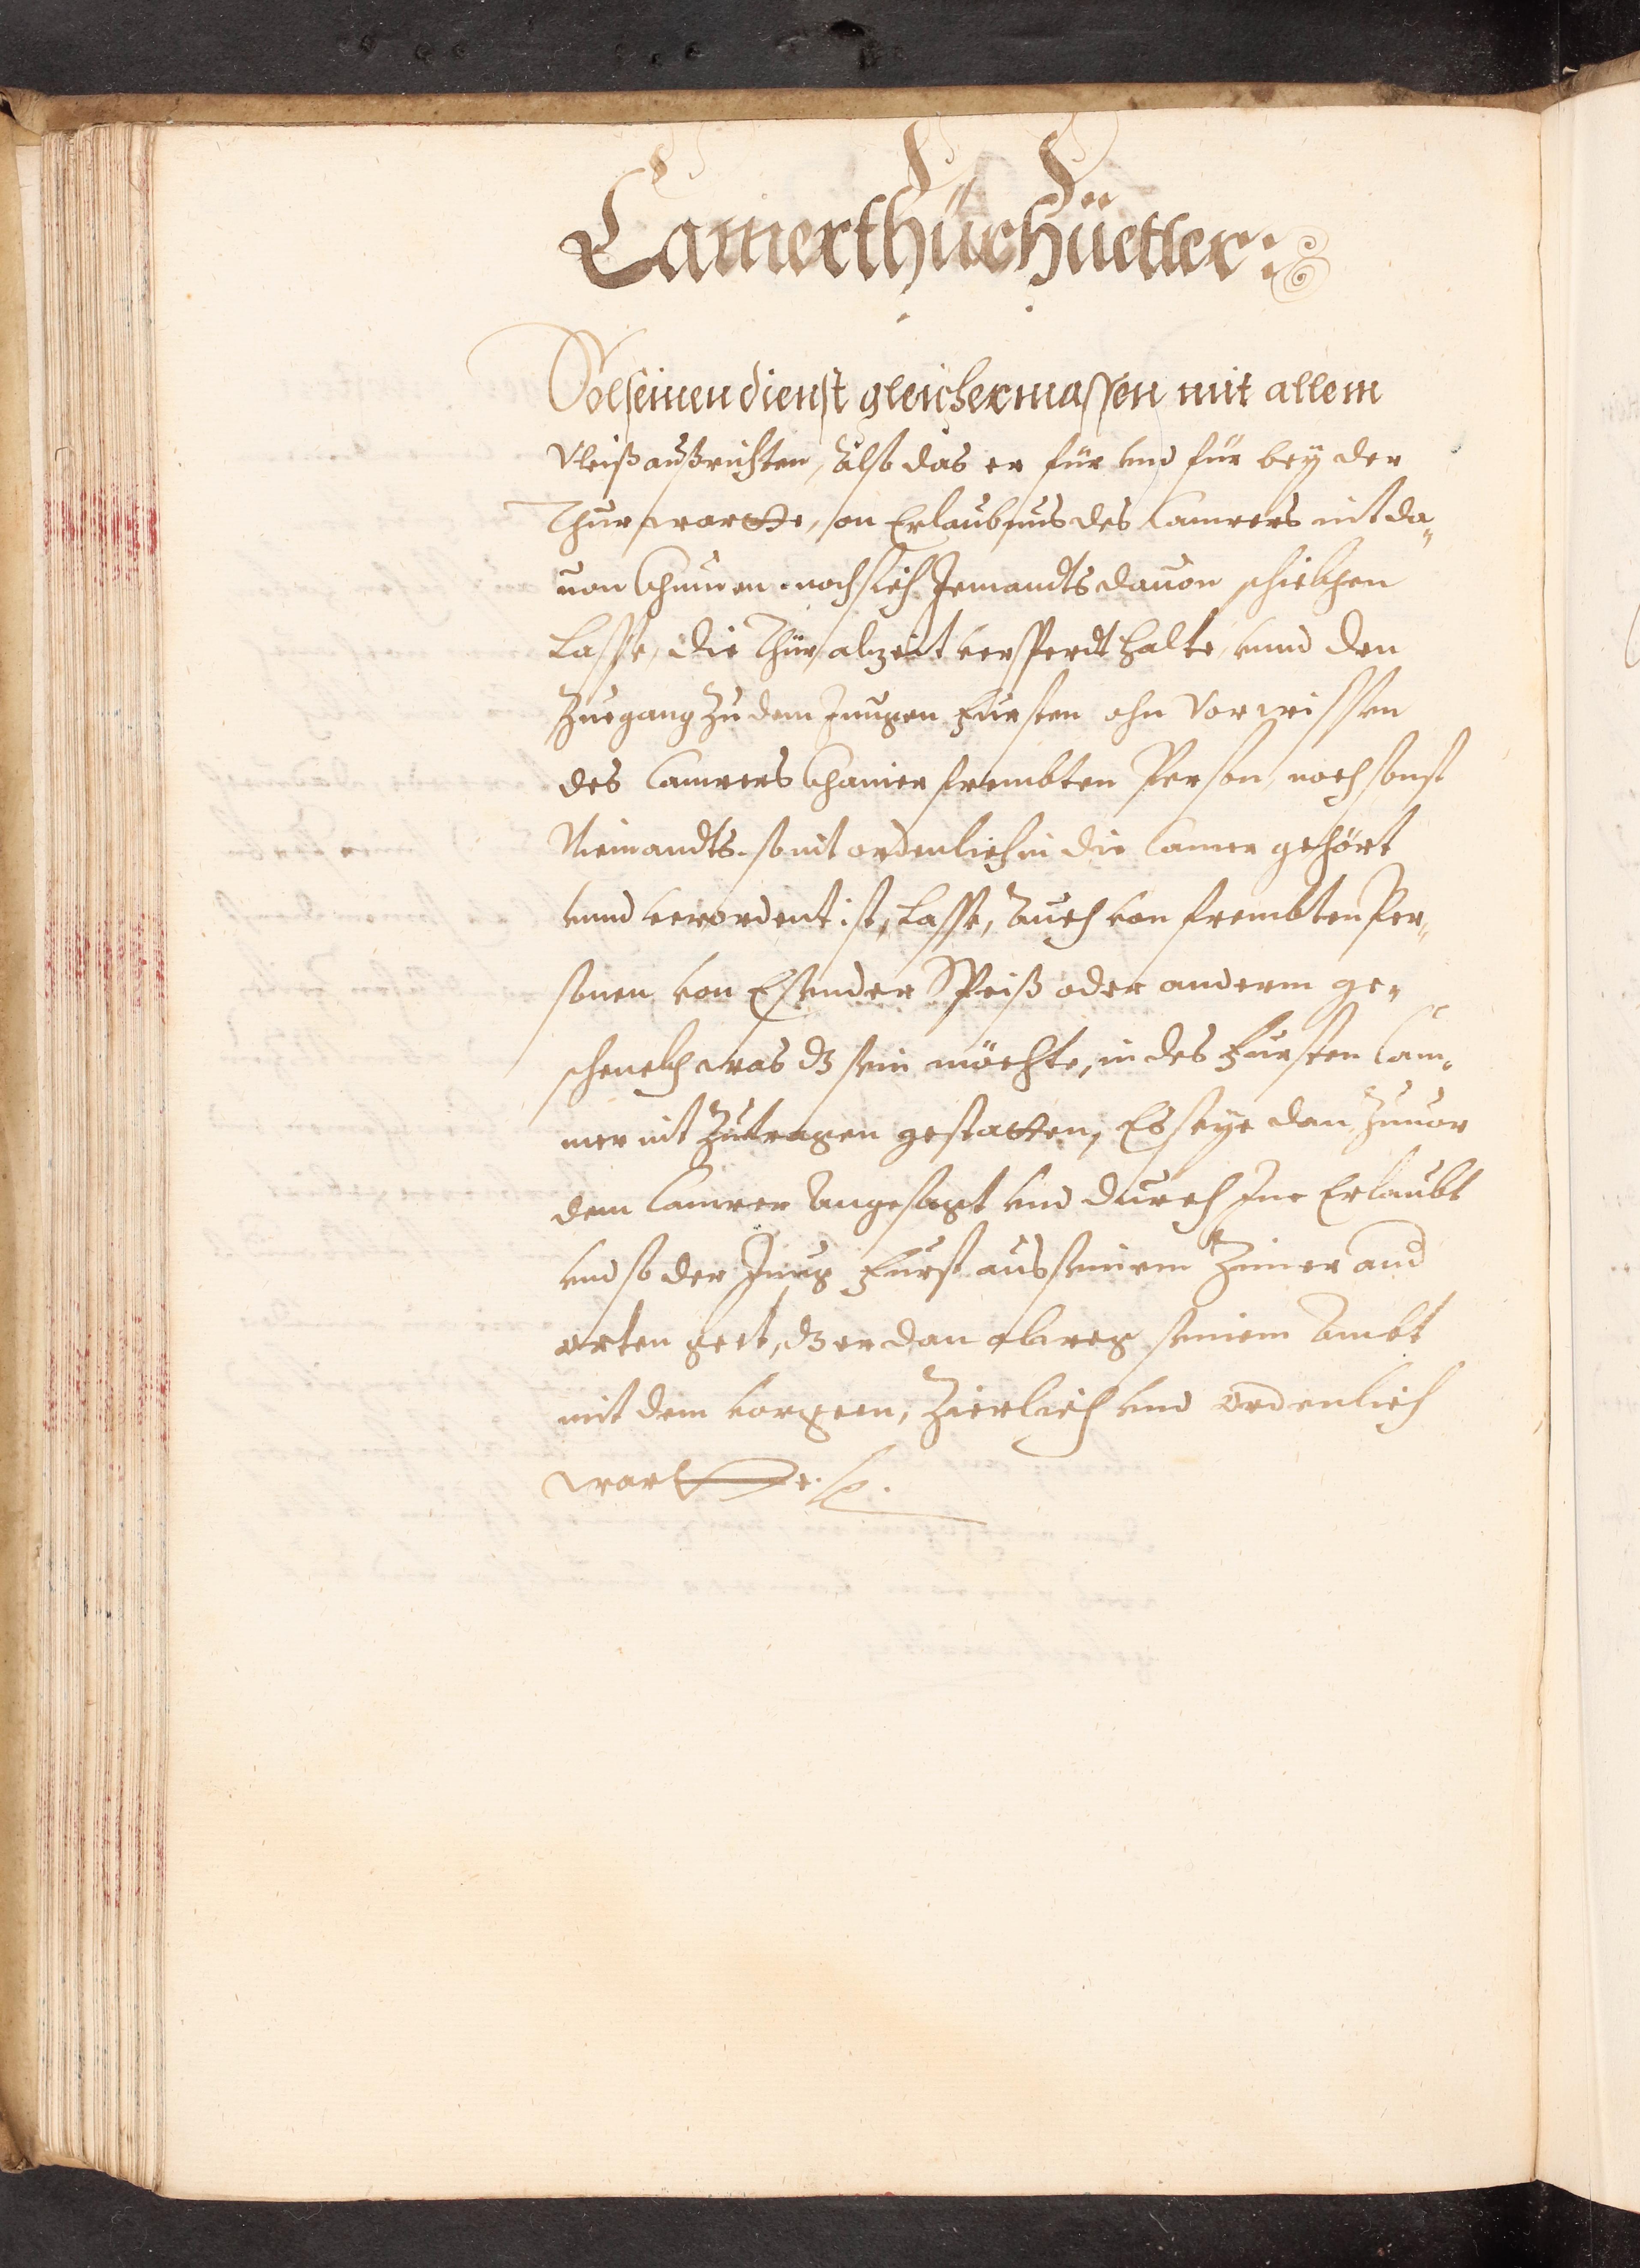 Camerthürhüetter:
Sol seinen dienst gleichermassen mit allem
Vleiß außrichten, Also das er für vnd für bey der
Thur wartte, on Erlaubnus des Camrers nit da„
uon khumen. noch sich Jemandts dauon schickhen
Lasse, die Thür alzeit versperdt halte, vnnd den
Zuegang Zu dem Jungen Fursten ohn Vorwissen
des Camrers khainer frembten Person, noch sonst
Niemandts. so nit ordenlich in die Camer gehört
vnnd verordent ist, Lasse, Auch von frembten Per„
sonen von Essender Speiß oder anderm ge„
schenckh was dz sein möchte, in des Fursten Cam„
mer nit Zutragen gestatten, Es seye dan Zuuor
dem Camrer Angesagt vnd durch Jne Erlaubt
vnd so der Jung Furst aus seinem Zimer and
orten geet, dz er dan alweg seinem Ambt
mit dem vorgeen, Zierlich vnd ordenlich
wartte.